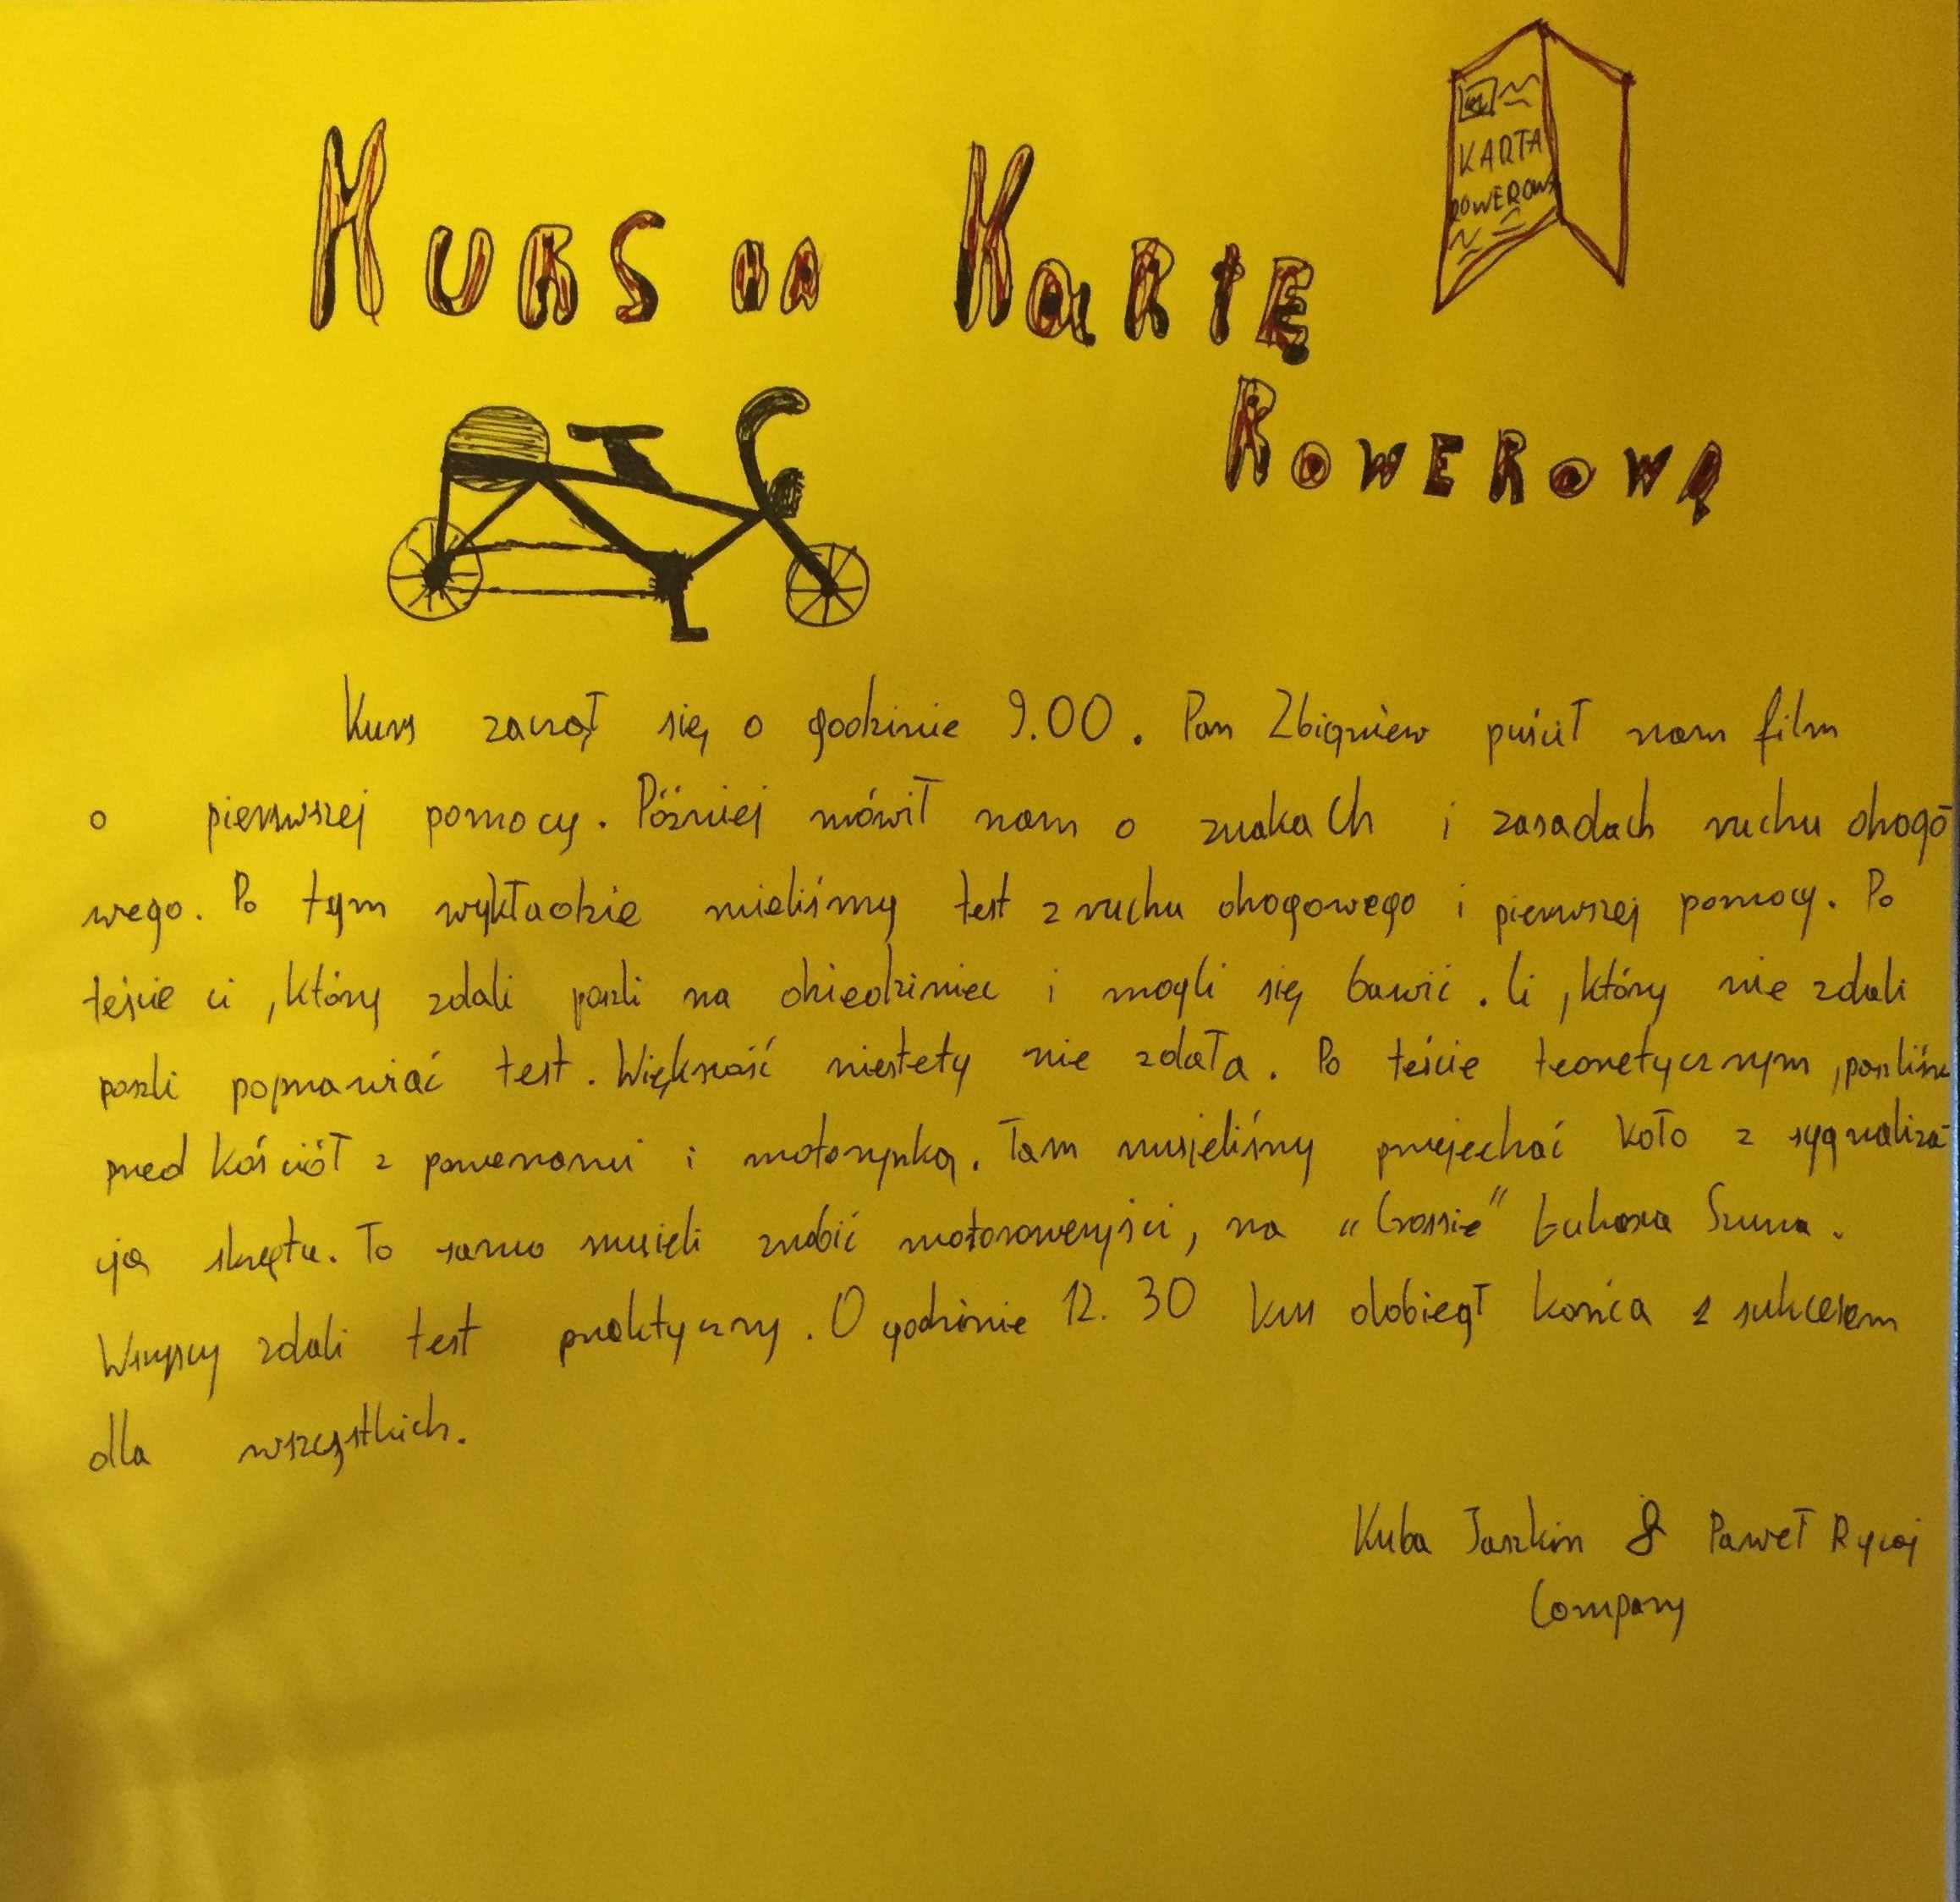 KARTA
ROWEROWA
KURS na KaRTĘ
ROWEROWĄ
Kurs zaczął się o godzinie 9.00. Pan Zbigniew puścił nam film
o pierwszej pomocy. Później mówił nam o znakach i zasadach ruchu drogo-
wego. Po tym wykładzie mieliśmy test z ruchu drogowego i pierwszej pomocy. Po
teście ci, który zdali poszli na dziedziniec i mogli się bawić. Ci, który nie zdali
poszli poprawiać test. Większość niestety nie zdała. Po teście teoretycznym, poszliśmy
przed kościół z rowerami i motorynką. Tam musieliśmy przejechać koło z sygnaliza-
cją skrętu. To samo musieli zrobić motorowerzyści, na "Crossie" Łukasza
Wszyscy zdali test praktyczny. O godzinie 12.30 kurs dobiegł końca z sukcesem
dla wszystkich.
Kuba Jaszkin & Paweł Rycaj
Company